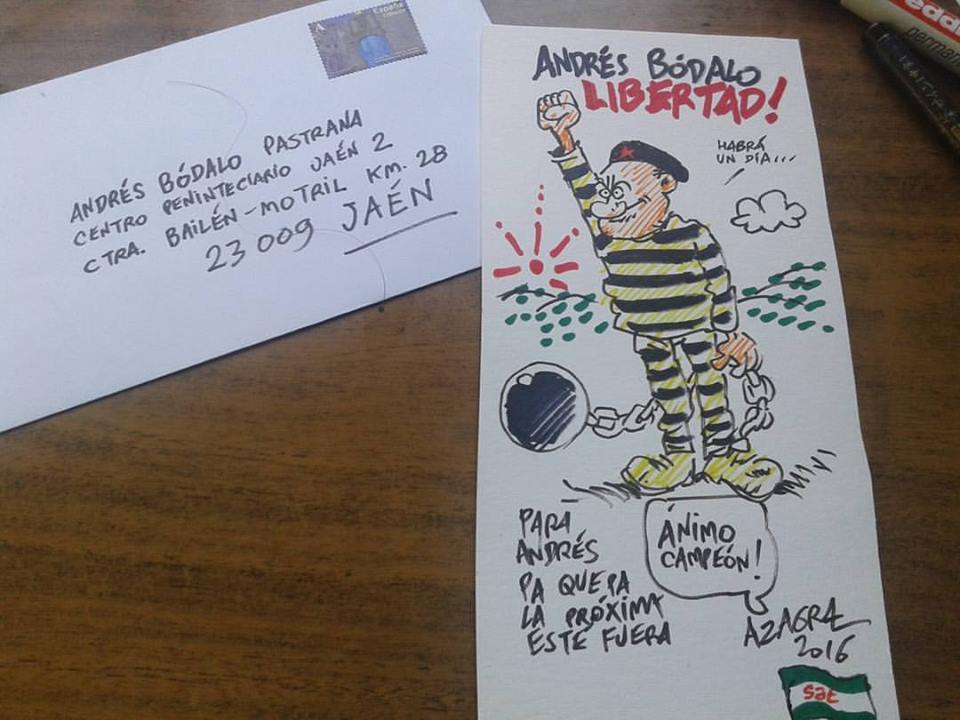 España
ANDRÉS BÓDALO PASTRANA
CENTRO PENINTECIARIO JAÉN 2
CTRA. BAILÉN-MOTRIL KM. 28
23009 JAÉN
ANDRÉS BÓDALO
LIBERTAD!
HABRÁ
UN DÍA...
PARA
ANDRÉS
PA QUE PA
LA PRÓXIMA
ESTÉ FUERA
ÁNIMO
CAMPEÓN!
AZAGRA
2016
sat
edd
perman